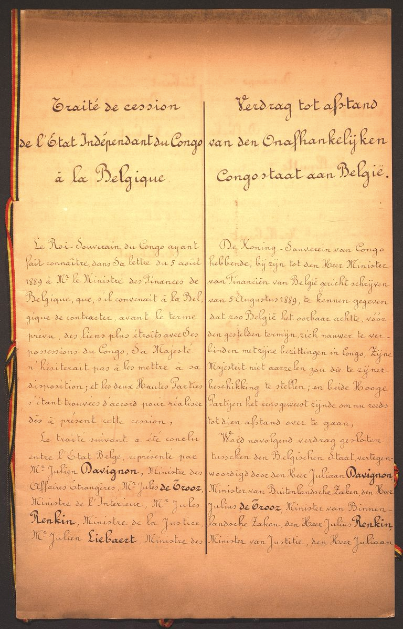 Traité de cession
de l'État Indépendant du Congo
à la Belgique
Le Roi-Souverain du Congo ayant
fait connaître, dans Sa lettre du 5 août
1889 à Mr le Ministre des Finances de
Belgique, que, s'il convenait à la Bel
gique de contracter, avant le terme
prévu, des liens plus étroits avec Ses
possessions du Congo, Sa Majesté
n'hésiterait pas à les mettre à sa
disposition, et les deux Hautes Parties
s'étant trouvées d'accord pour réaliser
dès à présent cette cession;
Le traité suivant a été conclu
entre l'État Belge, représenté par
Mr Julien Davignon, Ministre des
Affaires Étrangères, Mr Jules de Trooz,
Ministre de l'Intérieur, Mr Jules
Renkin, Ministre de la Justice
Mr Julien Liebaert, Ministre des
Verdrag tot afstand
van den Onafhankelijken
Congostaat aan België.
De Koning-Souverein van Congo
hebbende, bij zijn tot den Heer Minister
van Financiën van België gericht schrijven
van 5 Augustus 1889, te kennen gegeven
dat zoo België het oorbaar achtte, vóór
den gestelden termijn, zich nauwer te ver-
binden met zijne bezittingen in Congo, Zijne
Majesteit niet aarzelen zou die te zijner
beschikking te stellen; en beide Hooge
Partijen het eens geweest zijnde om nu reeds
tot dien afstand over te gaan;
Werd navolgend verdrag gesloten
tusschen den Belgischen Staat, vertegen-
woordigd door den Heer Juliaan Davignon
Minister van Buitenlandsche Zaken, den Heer
Julius de Trooz, Minister van Binnen-
landsche Zaken, den Heer Julius Renkin
Minister van Justitie, den Heer Juliaan